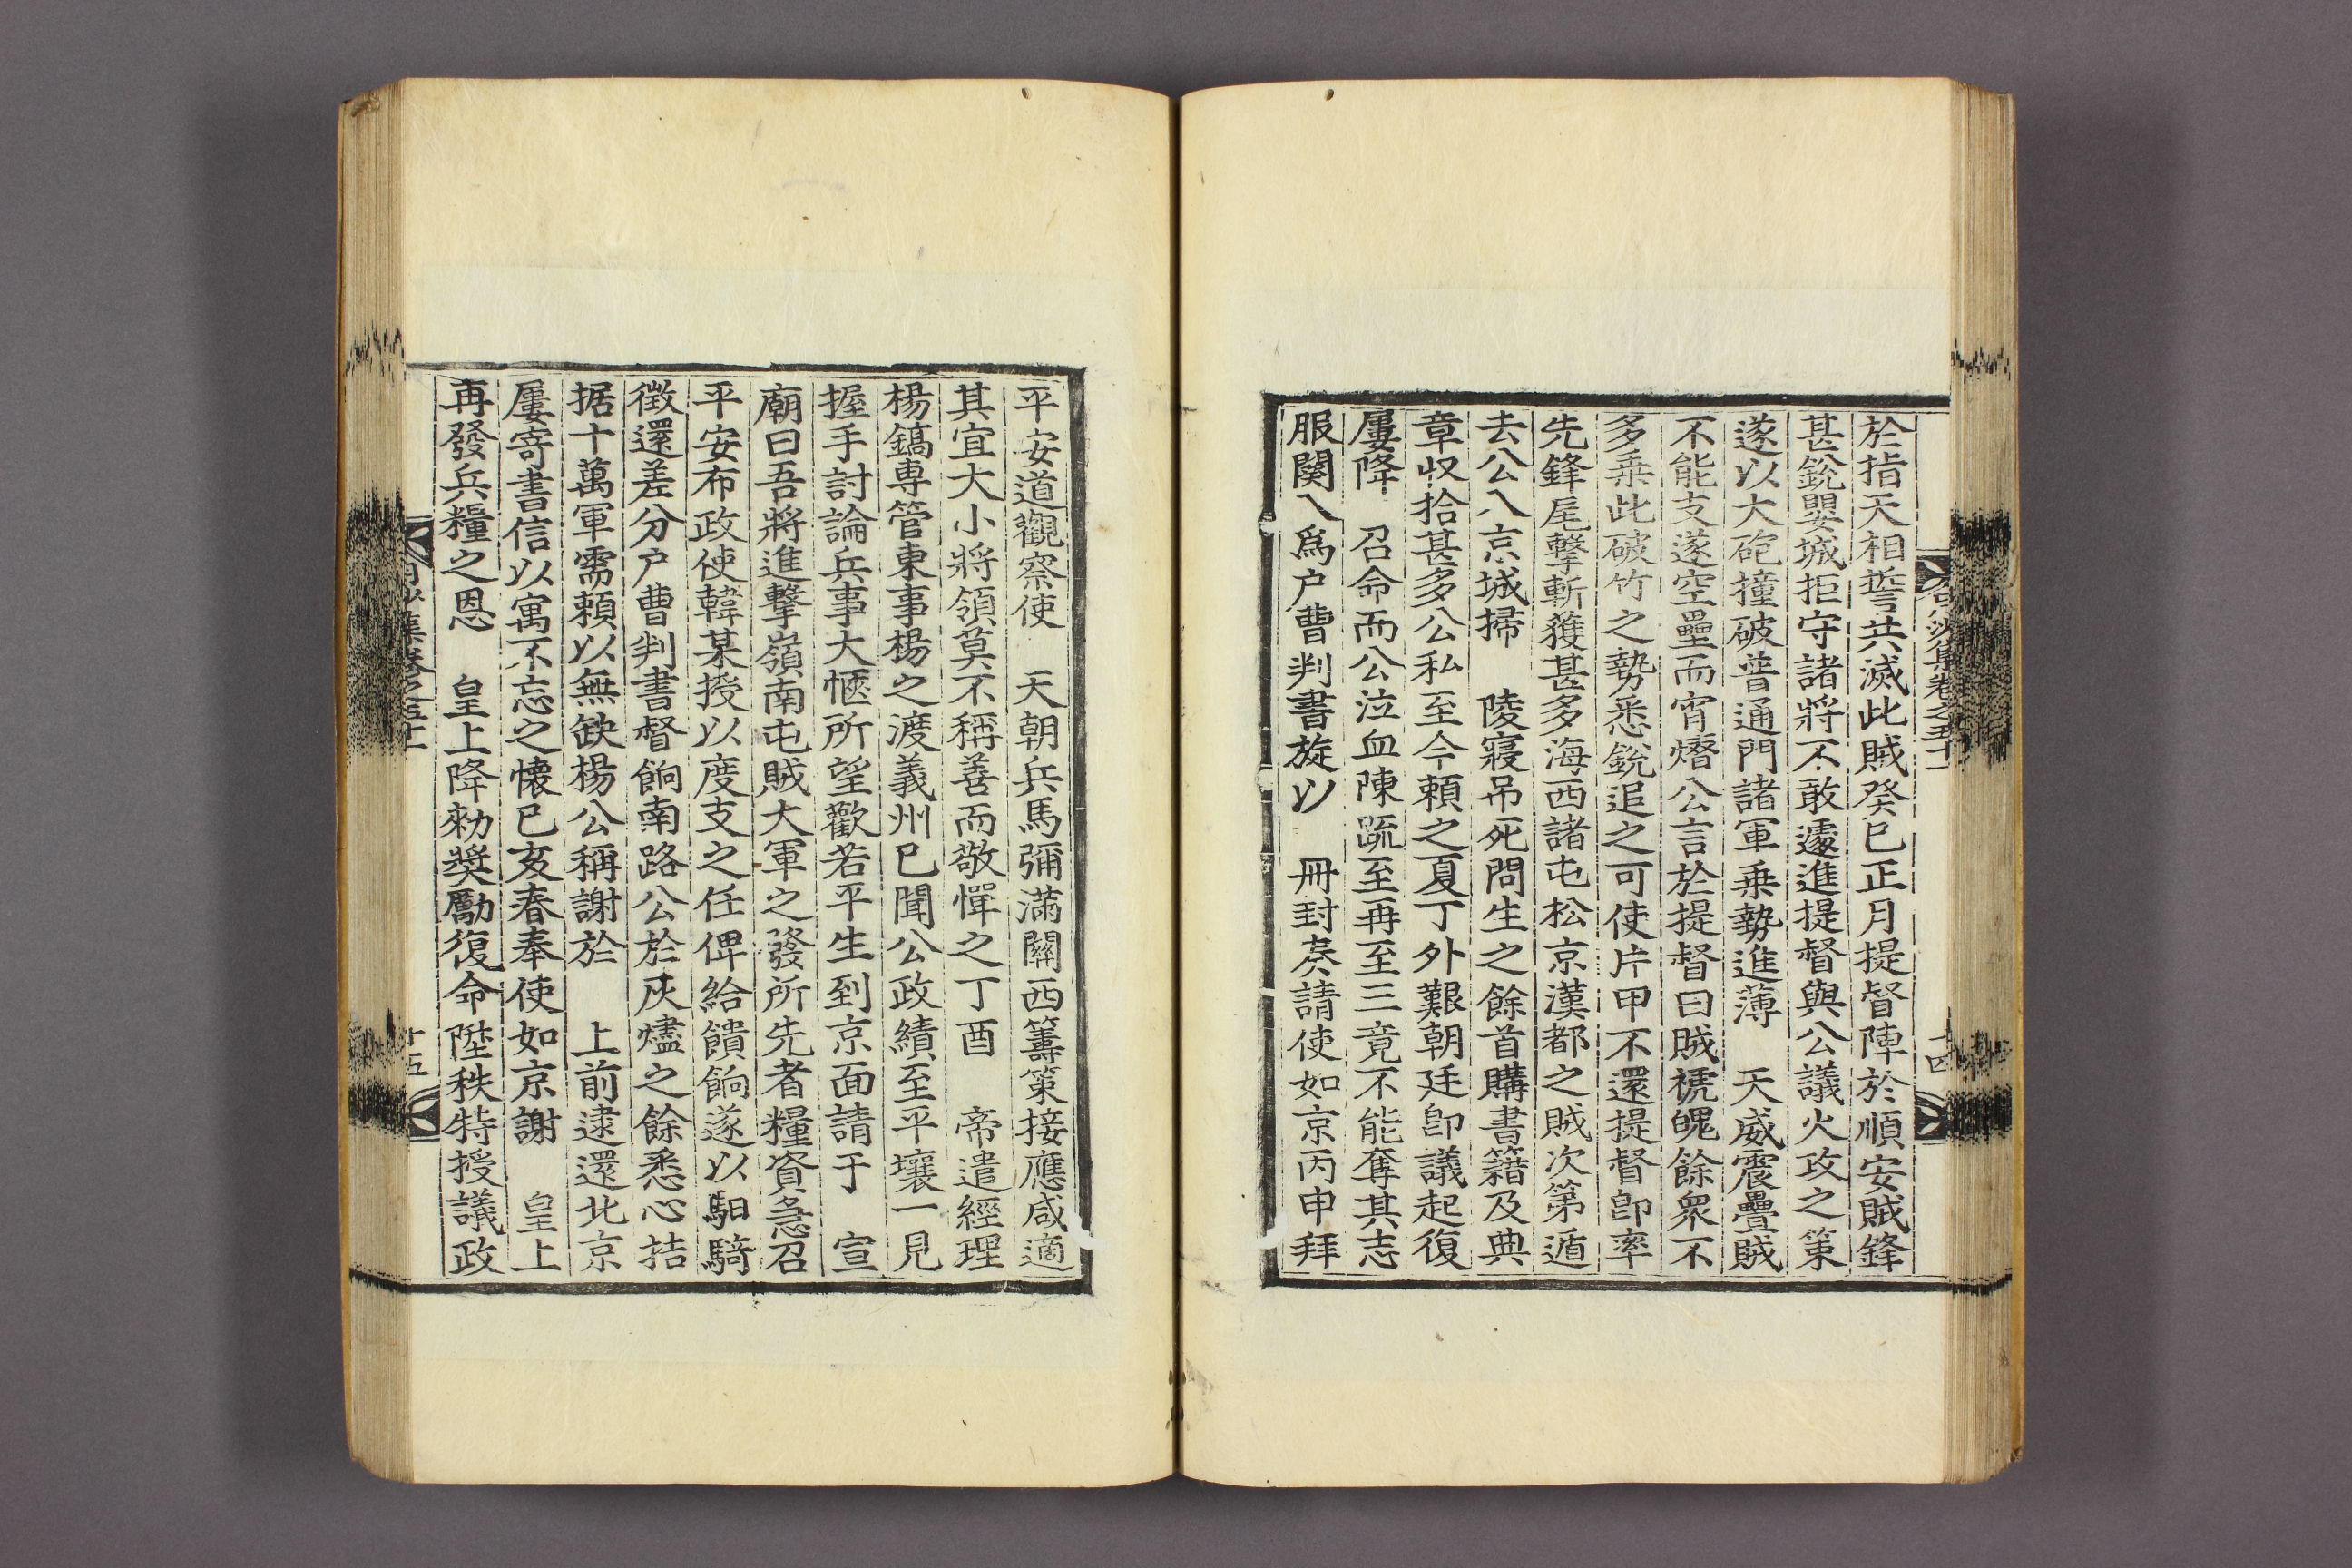 於指天相誓共滅此賊癸巳正月提督陣於順安賊鋒
甚銳嬰城拒守諸將不敢遽進提督與公議火攻之策
遂以大砲撞破普通門諸軍乗勢進薄　天威震疊賊
不能支遂空壘而宵熸公言於提督曰賊褫魄餘衆不
多乗此破竹之勢悉銳追之可使片甲不還提督卽率
先鋒尾擊斬獲甚多海西諸屯松京漢都之賊次第遁
去公入京城掃　陵寢吊死問生之餘首購書籍及典
章収拾甚多公私至今頼之夏丁外艱朝廷卽議起復
屢降　召命而公泣血陳疏至再至三竟不能奪其志
服闋入爲户曹判書旋以　冊封奏請使如京丙申拜
平安道觀察使　天朝兵馬彌滿關西籌策接應咸適
其宜大小將領莫不稱善而敬憚之丁酉　帝遣經理
楊鎬専管東事楊之渡義州已聞公政績至平壤一見
握手討論兵事大愜所望歡若平生到京面請于　宣
廟曰吾將進擊嶺南屯賊大軍之發所先者糧資急召
平安布政使韓某授以度支之任俾給饋餉遂以馹騎
徴還差分户曹判書督餉南路公於灰燼之餘悉心拮
据十萬軍需頼以無缺楊公稱謝於　上前逮還北京
屢寄書信以寓不忘之懐己亥春奉使如京謝　皇上
再發兵糧之恩　皇上降勑奬勵復命陞秩特授議政
月沙集卷之五十一
十四
月沙集卷之五十一
十五